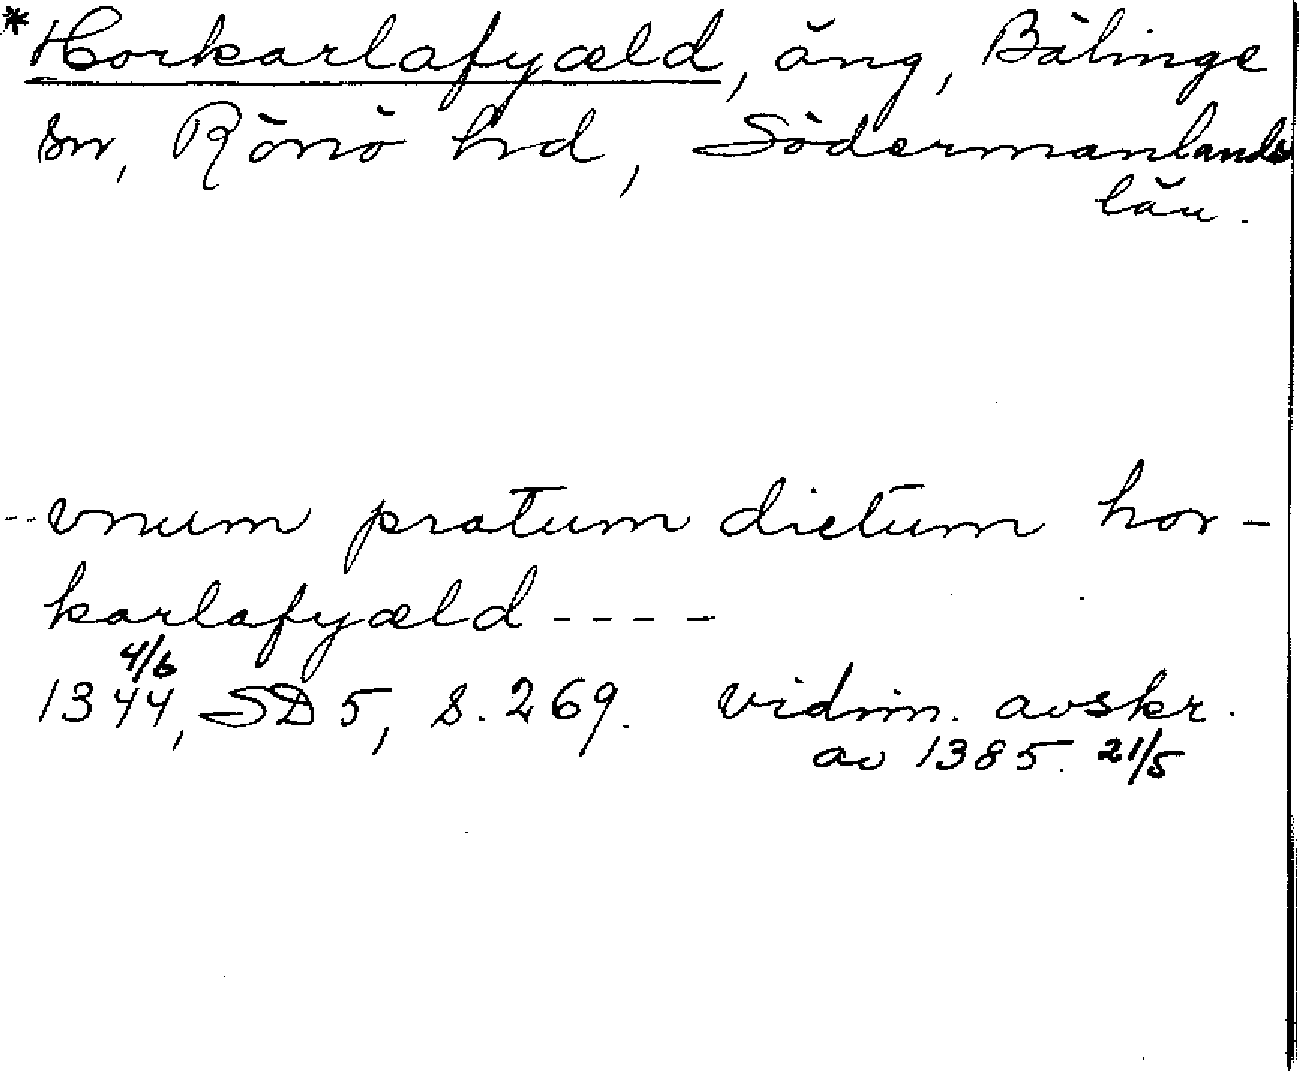 *Horkarlafyæld, äng, Bälinge
sn, Rönö hd, Södermanlands
län.
--vnum pratum dictum hor-
karlafyæld----
4/6
1344, SD 5, s. 269. vidim. avskr.
av 1385. 21/5